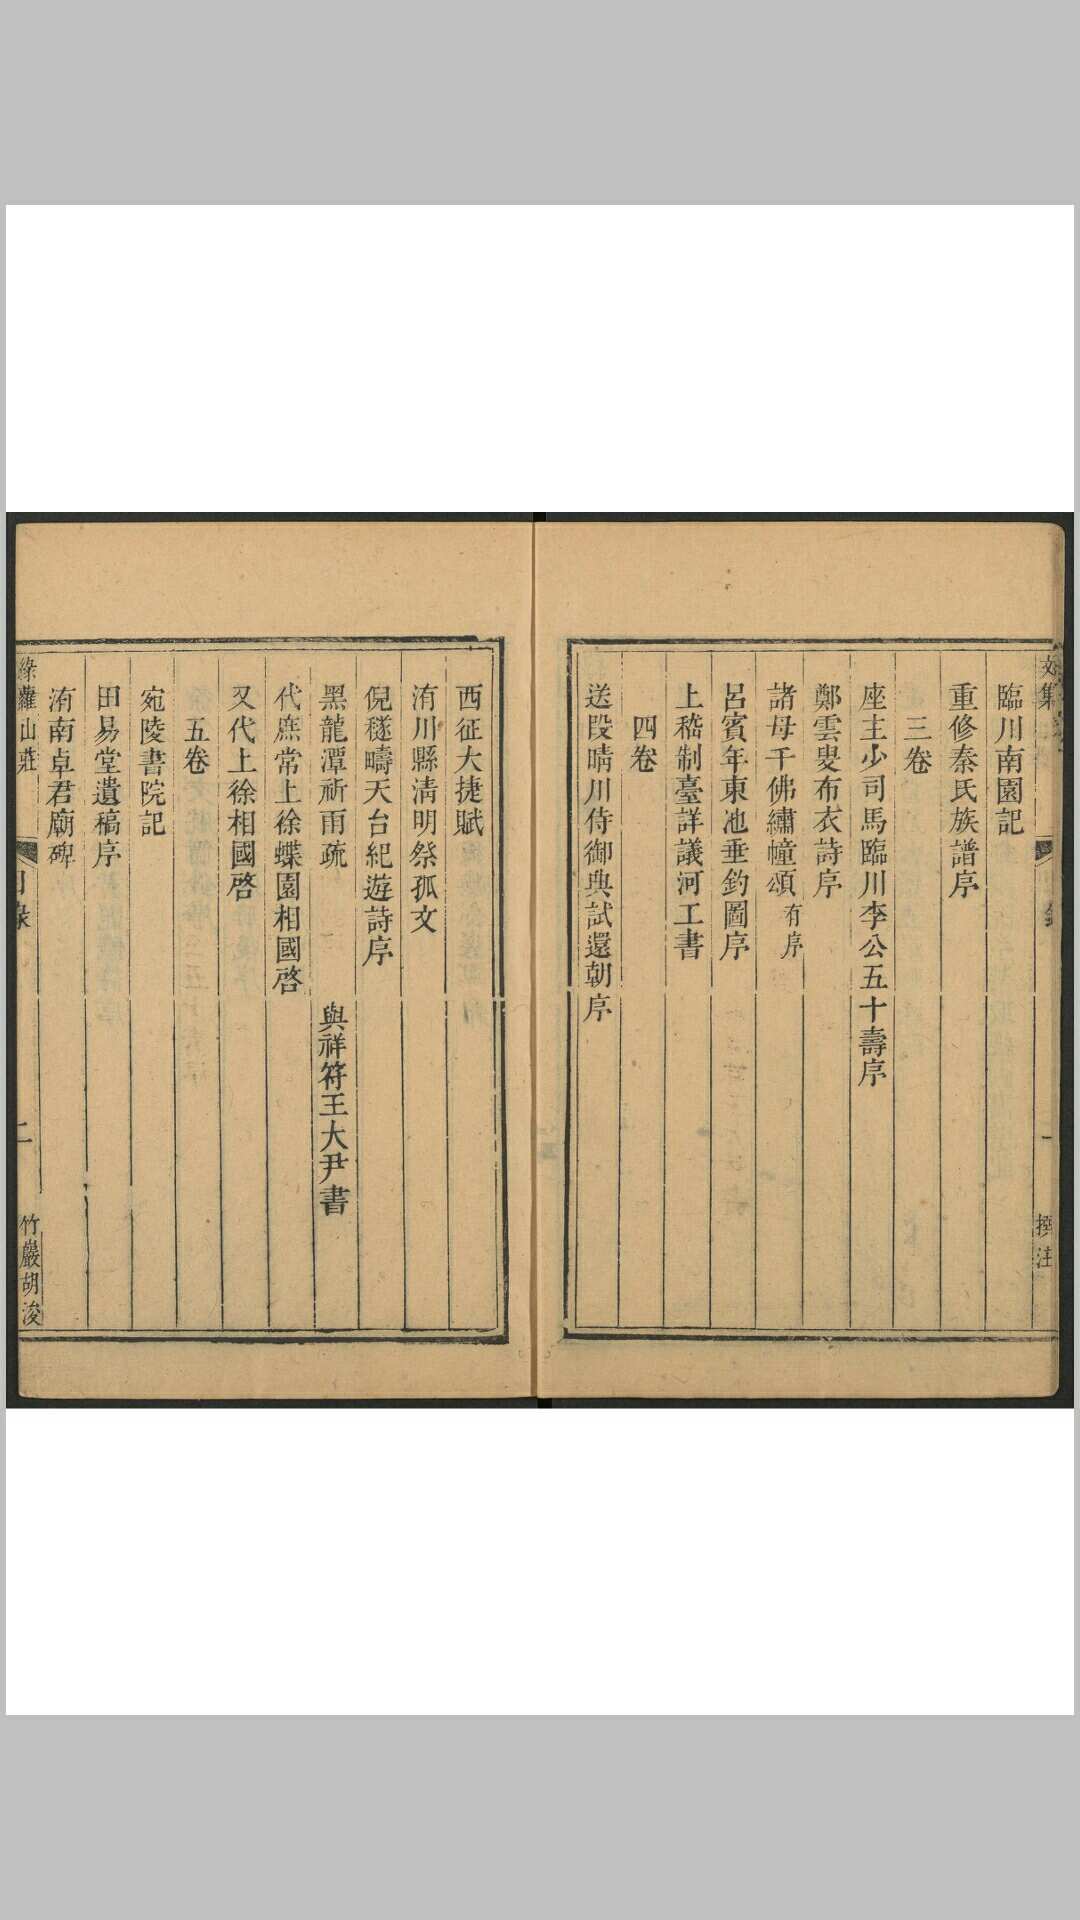 文集
錄
一
撰注
臨川南園記
重修秦氏族譜序
三卷
座主少司馬臨川李公五十壽序
鄭雲叟布衣詩序
諸母千佛繡幢頌有序
呂賓年東池垂釣圖序
上嵇制臺詳議河工書
四卷
送段晴川侍御典試還朝序
西征大捷賦
洧川縣清明祭孤文
倪穟疇天台紀遊詩序
黑龍潭祈雨疏 與祥符王大尹書
代庶常上徐蝶園相國啓
又代上徐相國啓
五卷
宛陵書院記
田易堂遺稿序
洧南卓君廟碑
綠蘿山莊
目錄
二
竹巖胡浚